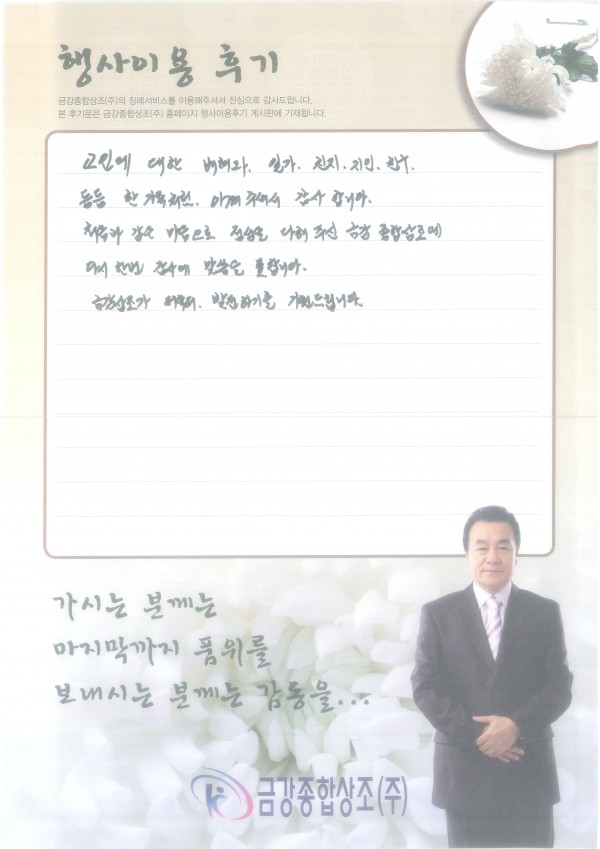 행사이용 후기
금강종합상조(주)의 장례서비스를 이용해주셔서 진심으로 감사드립니다.
본 후기문은 금강종합상조(주) 홈페이지 행사이용후기 게시판에 기재됩니다.
고인에 대한 배려와, 일가, 친지, 지인, 친구,
등등 한 가족처럼, 아껴 주셔서 감사 합니다.
처음과 같은 마음으로 정성을 다해 주신 금강 종합상조에
다시 한번 감사에 말씀을 드립니다.
금강상조가 발전하기를 기원드립니다.
가시는 분께는
마지막까지 품위를
보내시는 분께는 감동을...
금강종합상조(주)